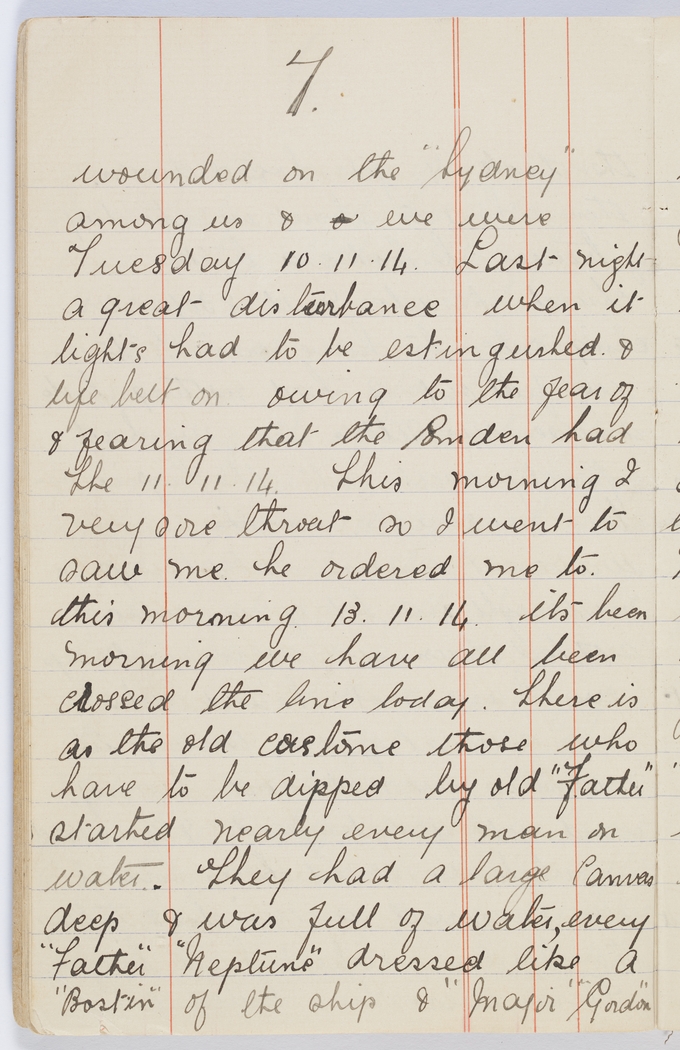 7.
wounded on the "Sydney"
among us & a we were
Tuesday 10.11.14. Last night
a great disturbance when it
lights had to be estingushed. &
life belt on owing to the fear of
& fearing that the Emden had
the 11.11.14. This morning I
very sore throat so I went to
saw me. he ordered me to.
this morning. 13.11.14 its been
morning we have all been
crossed the line today. There is
as the old custome those who
have to be dipped by old "Father"
started nearly every man on
water. They had a large Canvas
deep & was full of water, every
"Father" "Neptune" dressed like a
"Bostin" of the ship & "Major" "Gordon